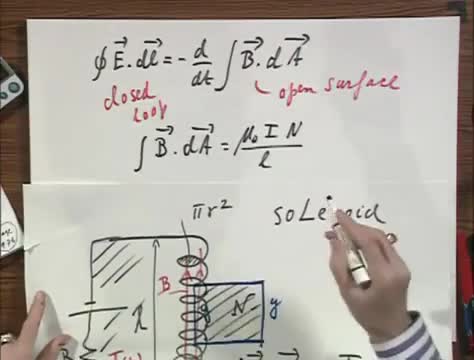 ∮ E⃗ . dl⃗ = - d/dt ∫ B⃗ . dA⃗
closed loop
open surface
∫ B⃗ . dA⃗ = μ₀ I N / l
πr²
soLenoid
B
N
y
l
R